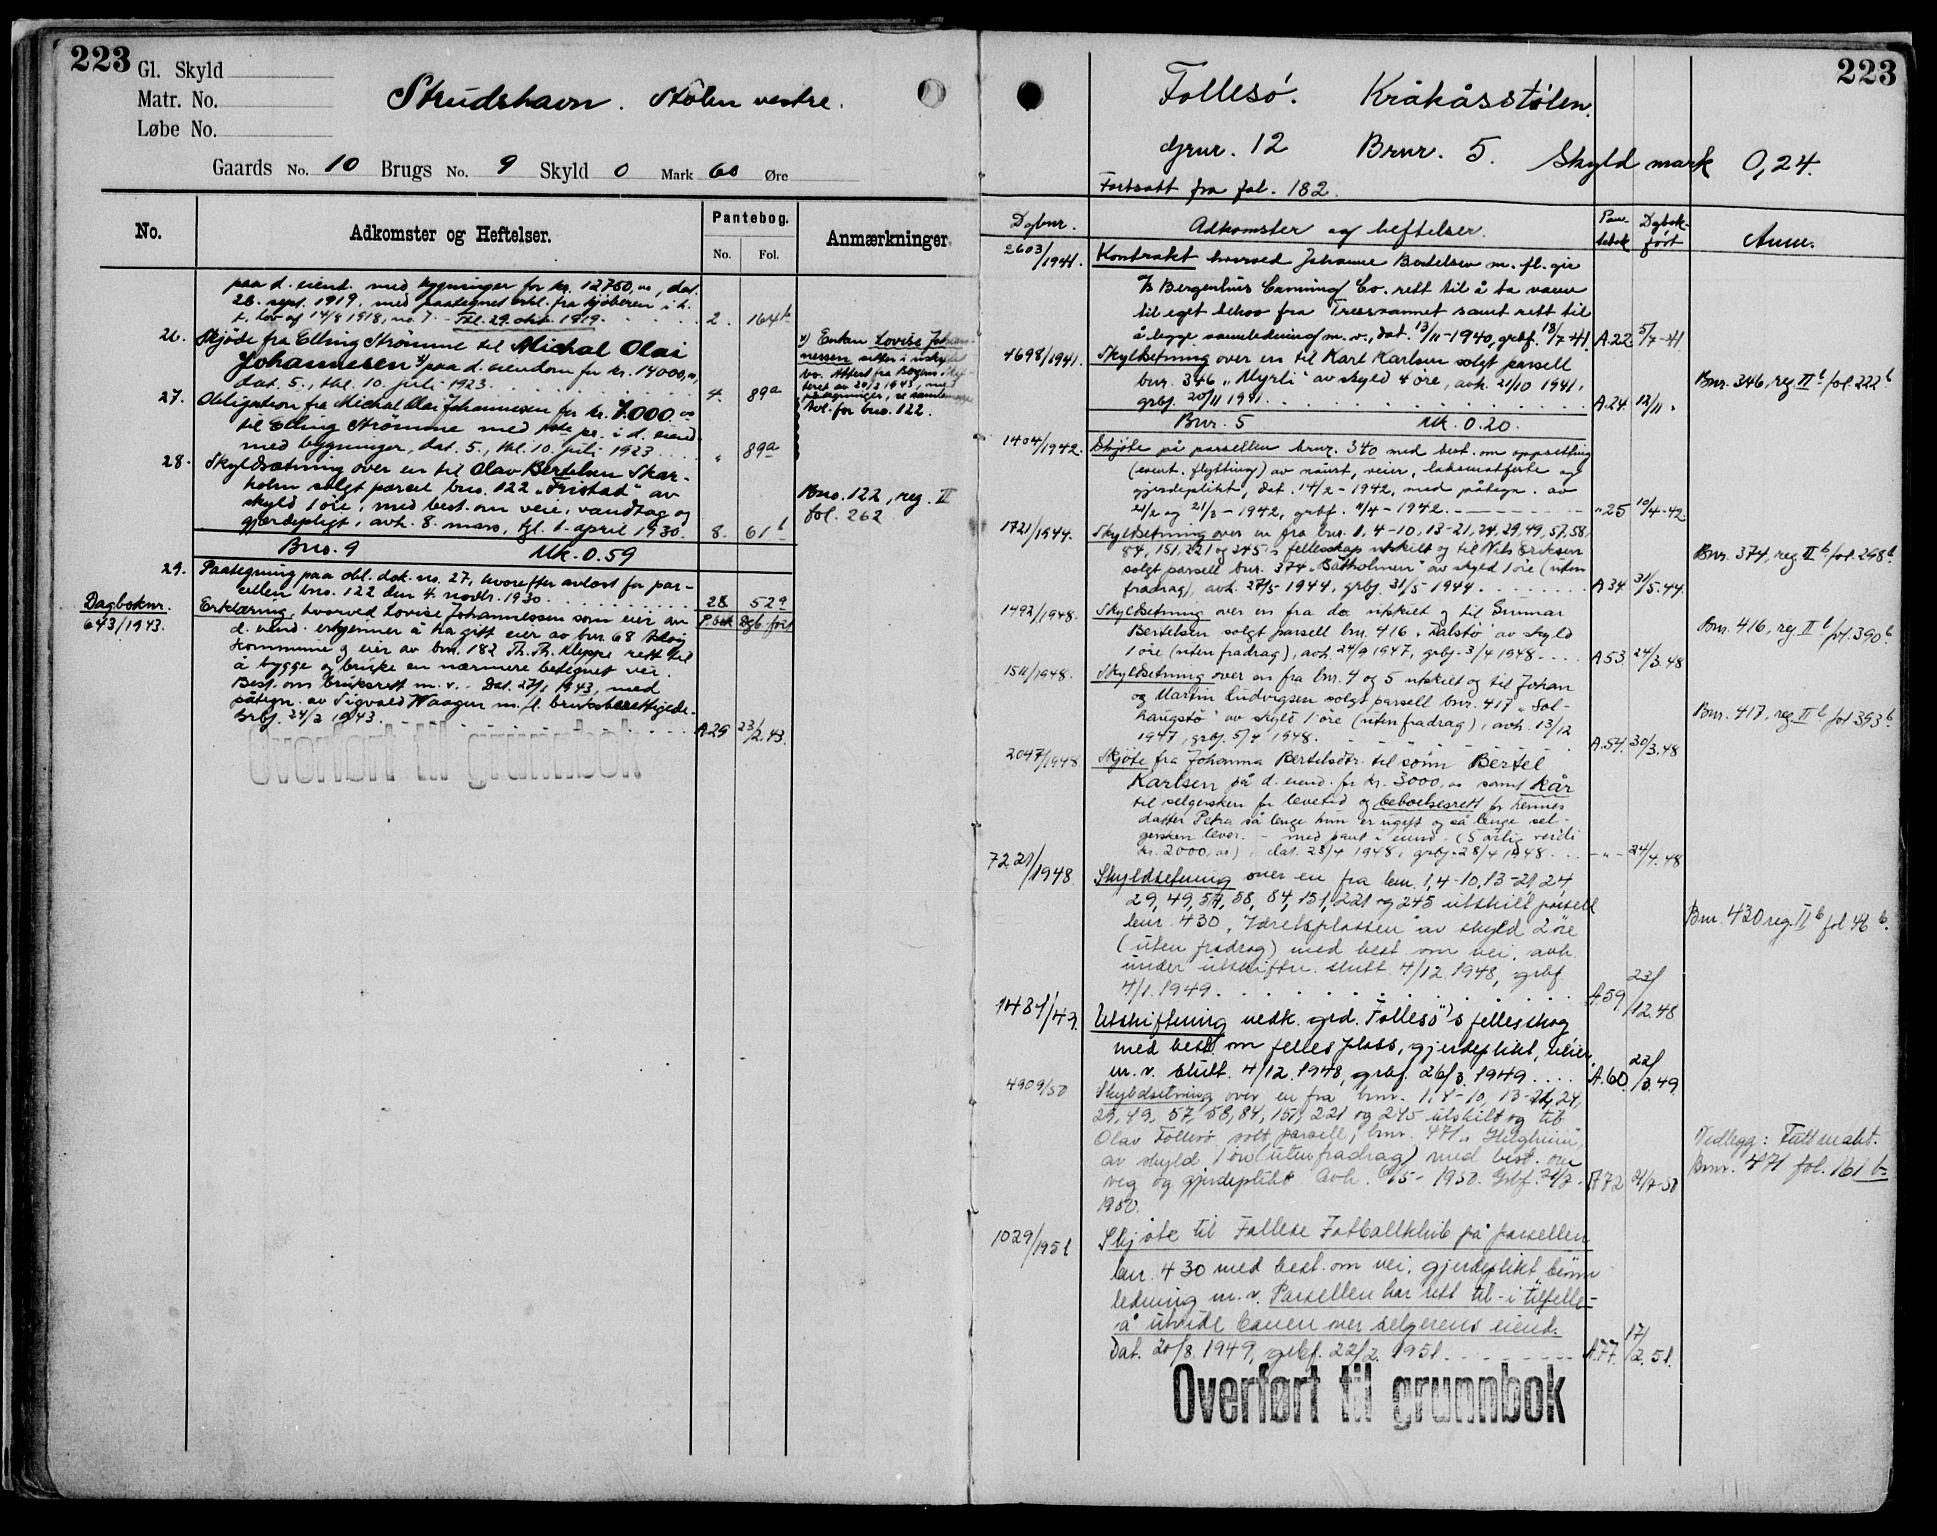 223
Gl. Skyld
Matr. No.
Løbe No.
Strudshavn. Stölen vestre.
Gaards No. 10 Brugs No. 9 Skyld 0 Mark 60 Øre
No.
Adkomster og Heftelser.
Pantebog.
No. Fol.
Anmærkninger
paa d. eiend. med bygninger for kr. 12750,00, dat.
26. sept. 1919, med paategnet erkl. fra kjøberen i h.
t. lov af 14/8 1918, no. 7. - Thl. 29. okt. 1919. 2. 164b
26. Skjöde fra Elling Strömme til Michal Olai
Johannesen x) paa d. eiendom for kr. 14000,00,
dat. 5., thl. 10. juli 1923. 4. 89a
27. Obligation fra Michal Olai Johannesen for kr. 7.000,00
til Elling Strömme med pr. i d. eiend.
med bygninger, dat. 5., thl. 10. juli 1923. " 89a
28. Skyldsætning over en til Olav Bertelsen Skar-
holm solgt parcel bno. 122 "Fristad" av
skyld 1 öre, med best. om veie, vandtag og
gjerdepligt, avh. 8. mars, tgl. 1. april 1930. 8. 61b
Bno. 9 Mk. 0.59
29. Paategning paa obl. dok. no. 27, hvorefter avlöst for par-
cellen bno. 122 den 4. novbr. 1930. 28 529
Dagboknr.
643/1943.
P.bok Dgb. ført
Erklæring, hvorved Lovise Johannessen som eier av
d. eiend. erkjenner å ha gitt eier av bnr. 68 Askøy
kommune og eier av bnr. 182 Th. Th. Kleppe rett til
å bygge og bruke en nærmere betegnet vei.
Best. om bruksrett m. v. - Dat. 27/1 1943, med
påtegn. av Sigvald Waagen m. fl. bruksberettigede.
Grbf. 24/2 1943. A.29 23/2.43.
Overført til grunnbok
x) Enken Lovise Johan-
nessen sitter i uskiftet
bo. Attest fra Bergens Skif-
teret av 20/2 1943, med
påtegninger, se
for bno. 122.
Bno. 122, reg. II
fol. 262
223
Follesö. Kråkåsstölen.
Grnr. 12 Brnr. 5. Skyld mark 0,24.
Fortsatt fra fol. 182.
Dgbnr.
Adkomster og heftelser.
Pan-
tebok
Dgbok-
ført
Anm.
2603/1941. Kontrakt hvorved Johanne Bertelsen m. fl. gir
A/S Bergenhus Canning Co. rett til å ta vann
til eget behov fra Tresvannet samt rett til
å legge vannledning m. v., dat. 13/11-1940, grbf. 18/7-41. A.22 5/7-41
4698/1941. Skyldsetning over en til Karl Karlsen solgt parsell
bnr. 346 "Myrli" av skyld 4 öre, avh. 21/10 1941,
grbf. 20/11 1941. A.24. 12/11.
Bnr. 346, reg II b fol. 222 b
Bnr. 5 Mk. 0.20.
1404/1942. Skjöte på parsellen bnr. 340 med best. om oppsetting
(event. flytting) av naust, veier, laksenotfeste og
gjerdeplikt, dat. 14/2-1942, med påtegn. av
21/2 og 21/3-1942, grbf. 11/4-1942. " 25 10/4-42
1721/1944. Skyldsetning over en fra bnr. 1, 4-10, 13-21, 24, 29, 49, 57, 58,
84, 151, 221 og 245's fellesskap utskilt og til Nils Eriksen
solgt parsell bnr. 374 "Båtholmen" av skyld 1 öre (uten
fradrag), avh. 27/5-1944, grbf. 31/5 1944. A 34. 31/5.44.
Bnr. 374, reg II b fol. 298 b
1492/1948. Skyldsetning over en fra do. utskilt og til Gunnar
Bertelsen solgt parsell bnr. 416 "Dalstö" av skyld
1 öre (uten fradrag), avh. 24/9 1947, grbf. 3/4 1948. A 53. 24/3.48
Bnr. 416, reg II b fol. 390 b
1511/1948. Skyldsetning over en fra bnr. 4 og 5 utskilt og til Johan
og Martin Ludvigsen solgt parsell bnr. 417 "Sol-
haugstö" av skyld 1 öre (uten fradrag), avh. 13/12
1947, grbf. 5/4 1948. A.54. 30/3.48
Bnr. 417, reg II b fol 393 b
2047/1948 Skjöte fra Johanna Bertelsdtr. til sönn Bertel
Karlsen på d. eiend. for kr. 3000,00 samt kår
til selgersken for levetid og beboelsesrett for hennes
datter Petra så lenge hun er ugift og så lenge sel-
gersken lever. - med pant i eiend. - (5 årlig verdi
kr. 2000,00), dat. 23/4 1948, grbf. 28/4 1948. - " - 24/4.48
7221/1948. Skyldsetning over en fra bnr. 1, 4-10, 13-21, 24,
29, 49, 57, 58, 84, 151, 221 og 245 utskilt parsell
bnr. 430, "Idrettsplassen" av skyld 2 öre
(uten fradrag) med best. om vei, avh.
under utskiftn. slutt. 4/12. 1948, grbf.
4/1. 1949. A.59 23/12.48
Bnr. 430 reg. II b fol 46 b.
1487/49. Utskiftning vedk. grd. Follesö's felles skog
med best. om felles plass, gjerdeplikt, veier
m. v. Slutt. 4/12. 1948, grbf. 26/3. 1949. A.60. 22/3.49.
4909/50 Skyldsetning over en fra bnr. 1, 4-10, 13-21, 24,
29, 49, 57, 58, 84, 151, 221 og 245 utskilt og til
Olav Follesö solt parsell, bnr. 471, "Helgheim",
av skyld 1 öre (uten fradrag) med best. om
veg og gjerdeplikt Avh. 6/5-1950. Grbf. 21/7-
1950. A 72 21/7-50
Vedlegg: Fullmakt.
Bnr. 471 fol. 161 b
1029/1951 Skjöte til Follese Fotballklub på parsellen
bnr. 430 med best. om vei, gjerdeplikt
ledning m. v. Parsellen har rett til - i tilfelle -
å utvide banen over selgerens eiend.
Dat. 20/8. 1949, grbf. 22/2. 1951. A.77. 17/2.51.
Overført til grunnbok